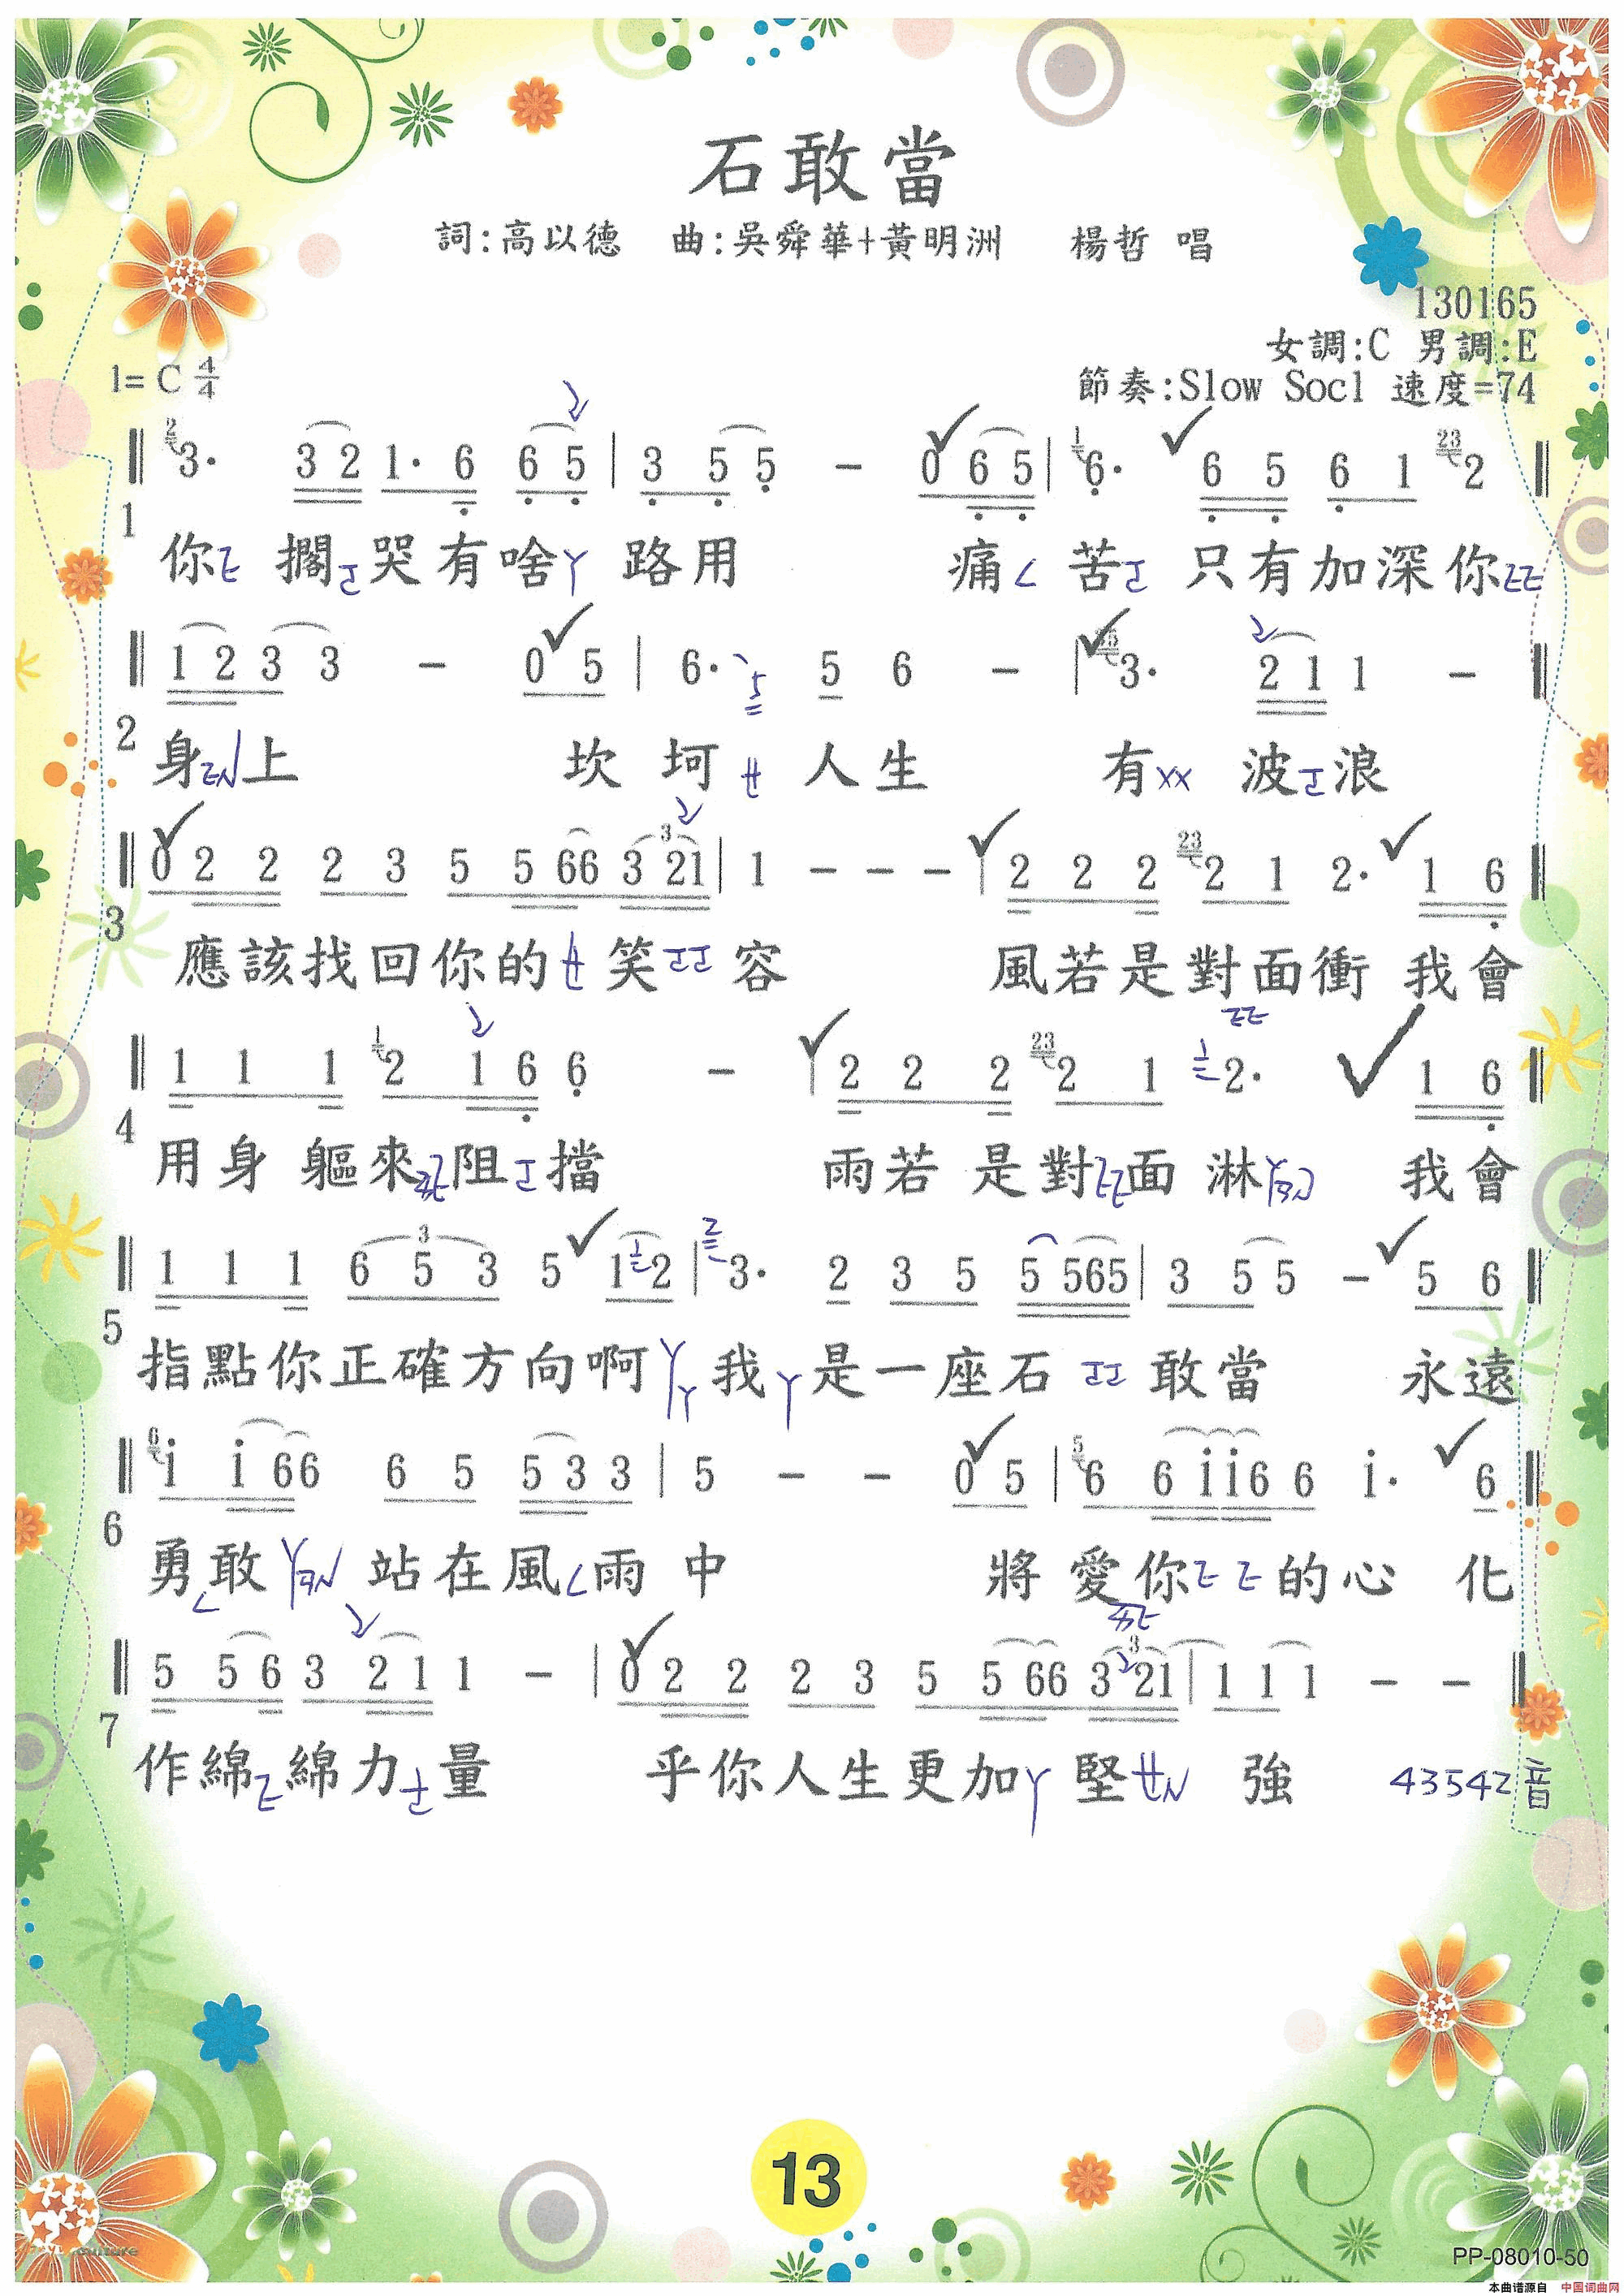 石敢當
詞:高以德 曲:吳舜華+黃明洲 楊哲 唱
130165
女調:C 男調:E
1= C 4/4 節奏:Slow Socl 速度=74
2 3· 3 2 1· 6 6 5 | 3 5 5 - 0 6 5 | 1 6· 6 5 6 1 23 2
1 你 擱 哭 有 啥 路 用 痛 苦 只 有 加 深 你
1 2 3 3 - 0 5 | 6· 5 5 6 - | 3· 2 1 1 -
2 身 上 坎 坷 人 生 有 波 浪
0 2 2 2 3 5 5 66 3 21 | 1 - - - | 2 2 2 23 2 1 2· 1 6
3 應 該 找 回 你 的 笑 容 風 若 是 對 面 衝 我 會
1 1 1 1 2 1 6 6 - | 2 2 2 23 2 1 1 2· 1 6
4 用 身 軀 來 阻 擋 雨 若 是 對 面 淋 我 會
1 1 1 6 5 3 5 1 1 2 | 2 3· 2 3 5 5 565 | 3 5 5 - 5 6
5 指 點 你 正 確 方 向 啊 ㄚ ㄚ 我 ㄚ 是 一 座 石 敢 當 永 遠
6 i i 66 6 5 5 3 3 | 5 - - 0 5 | 5 6 6 i i 6 6 i· 6
6 勇 敢 站 在 風 雨 中 將 愛 你 的 心 化
5 5 6 3 2 1 1 - | 0 2 2 2 3 5 5 66 3 21 | 1 1 1 - -
7 作 綿 綿 力 量 乎 你 人 生 更 加 ㄚ 堅 強 43542音
13
PP-08010-50
本曲谱源自 中国词曲网